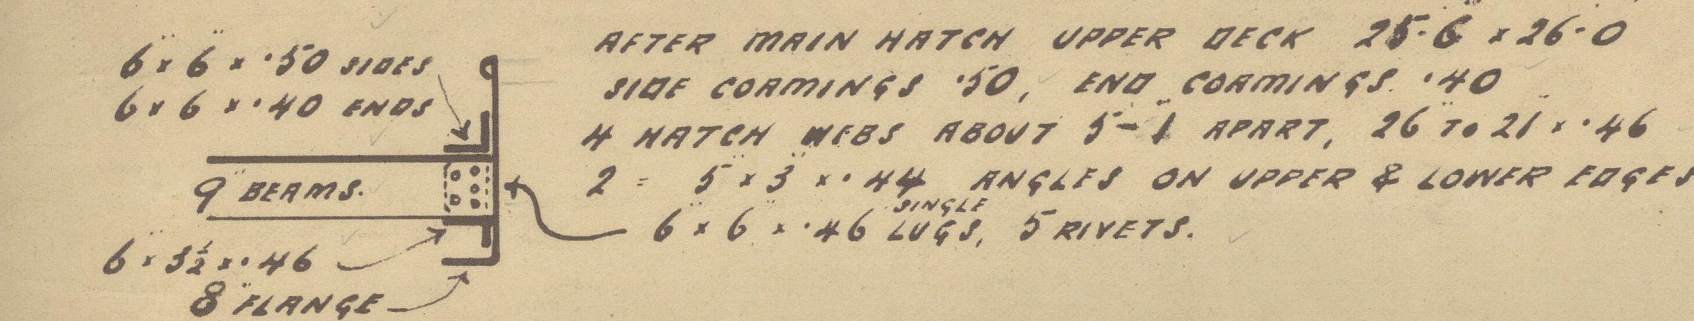 6" x 6" x .50 SIDES
6 x 6" x .40 ENDS
9" BEAMS.
6" x 3½ x .46
8" FLANGE
AFTER MAIN HATCH UPPER DECK 25-6 x 26-0
SIDE COAMINGS .50, END COAMINGS. .40
4 HATCH WEBS ABOUT 5-1 APART, 26" TO 21" x .46
2 = 5" x 3" x .44 ANGLES ON UPPER & LOWER EDGES
6" x 6" x .46 SINGLE LUGS, 5 RIVETS.